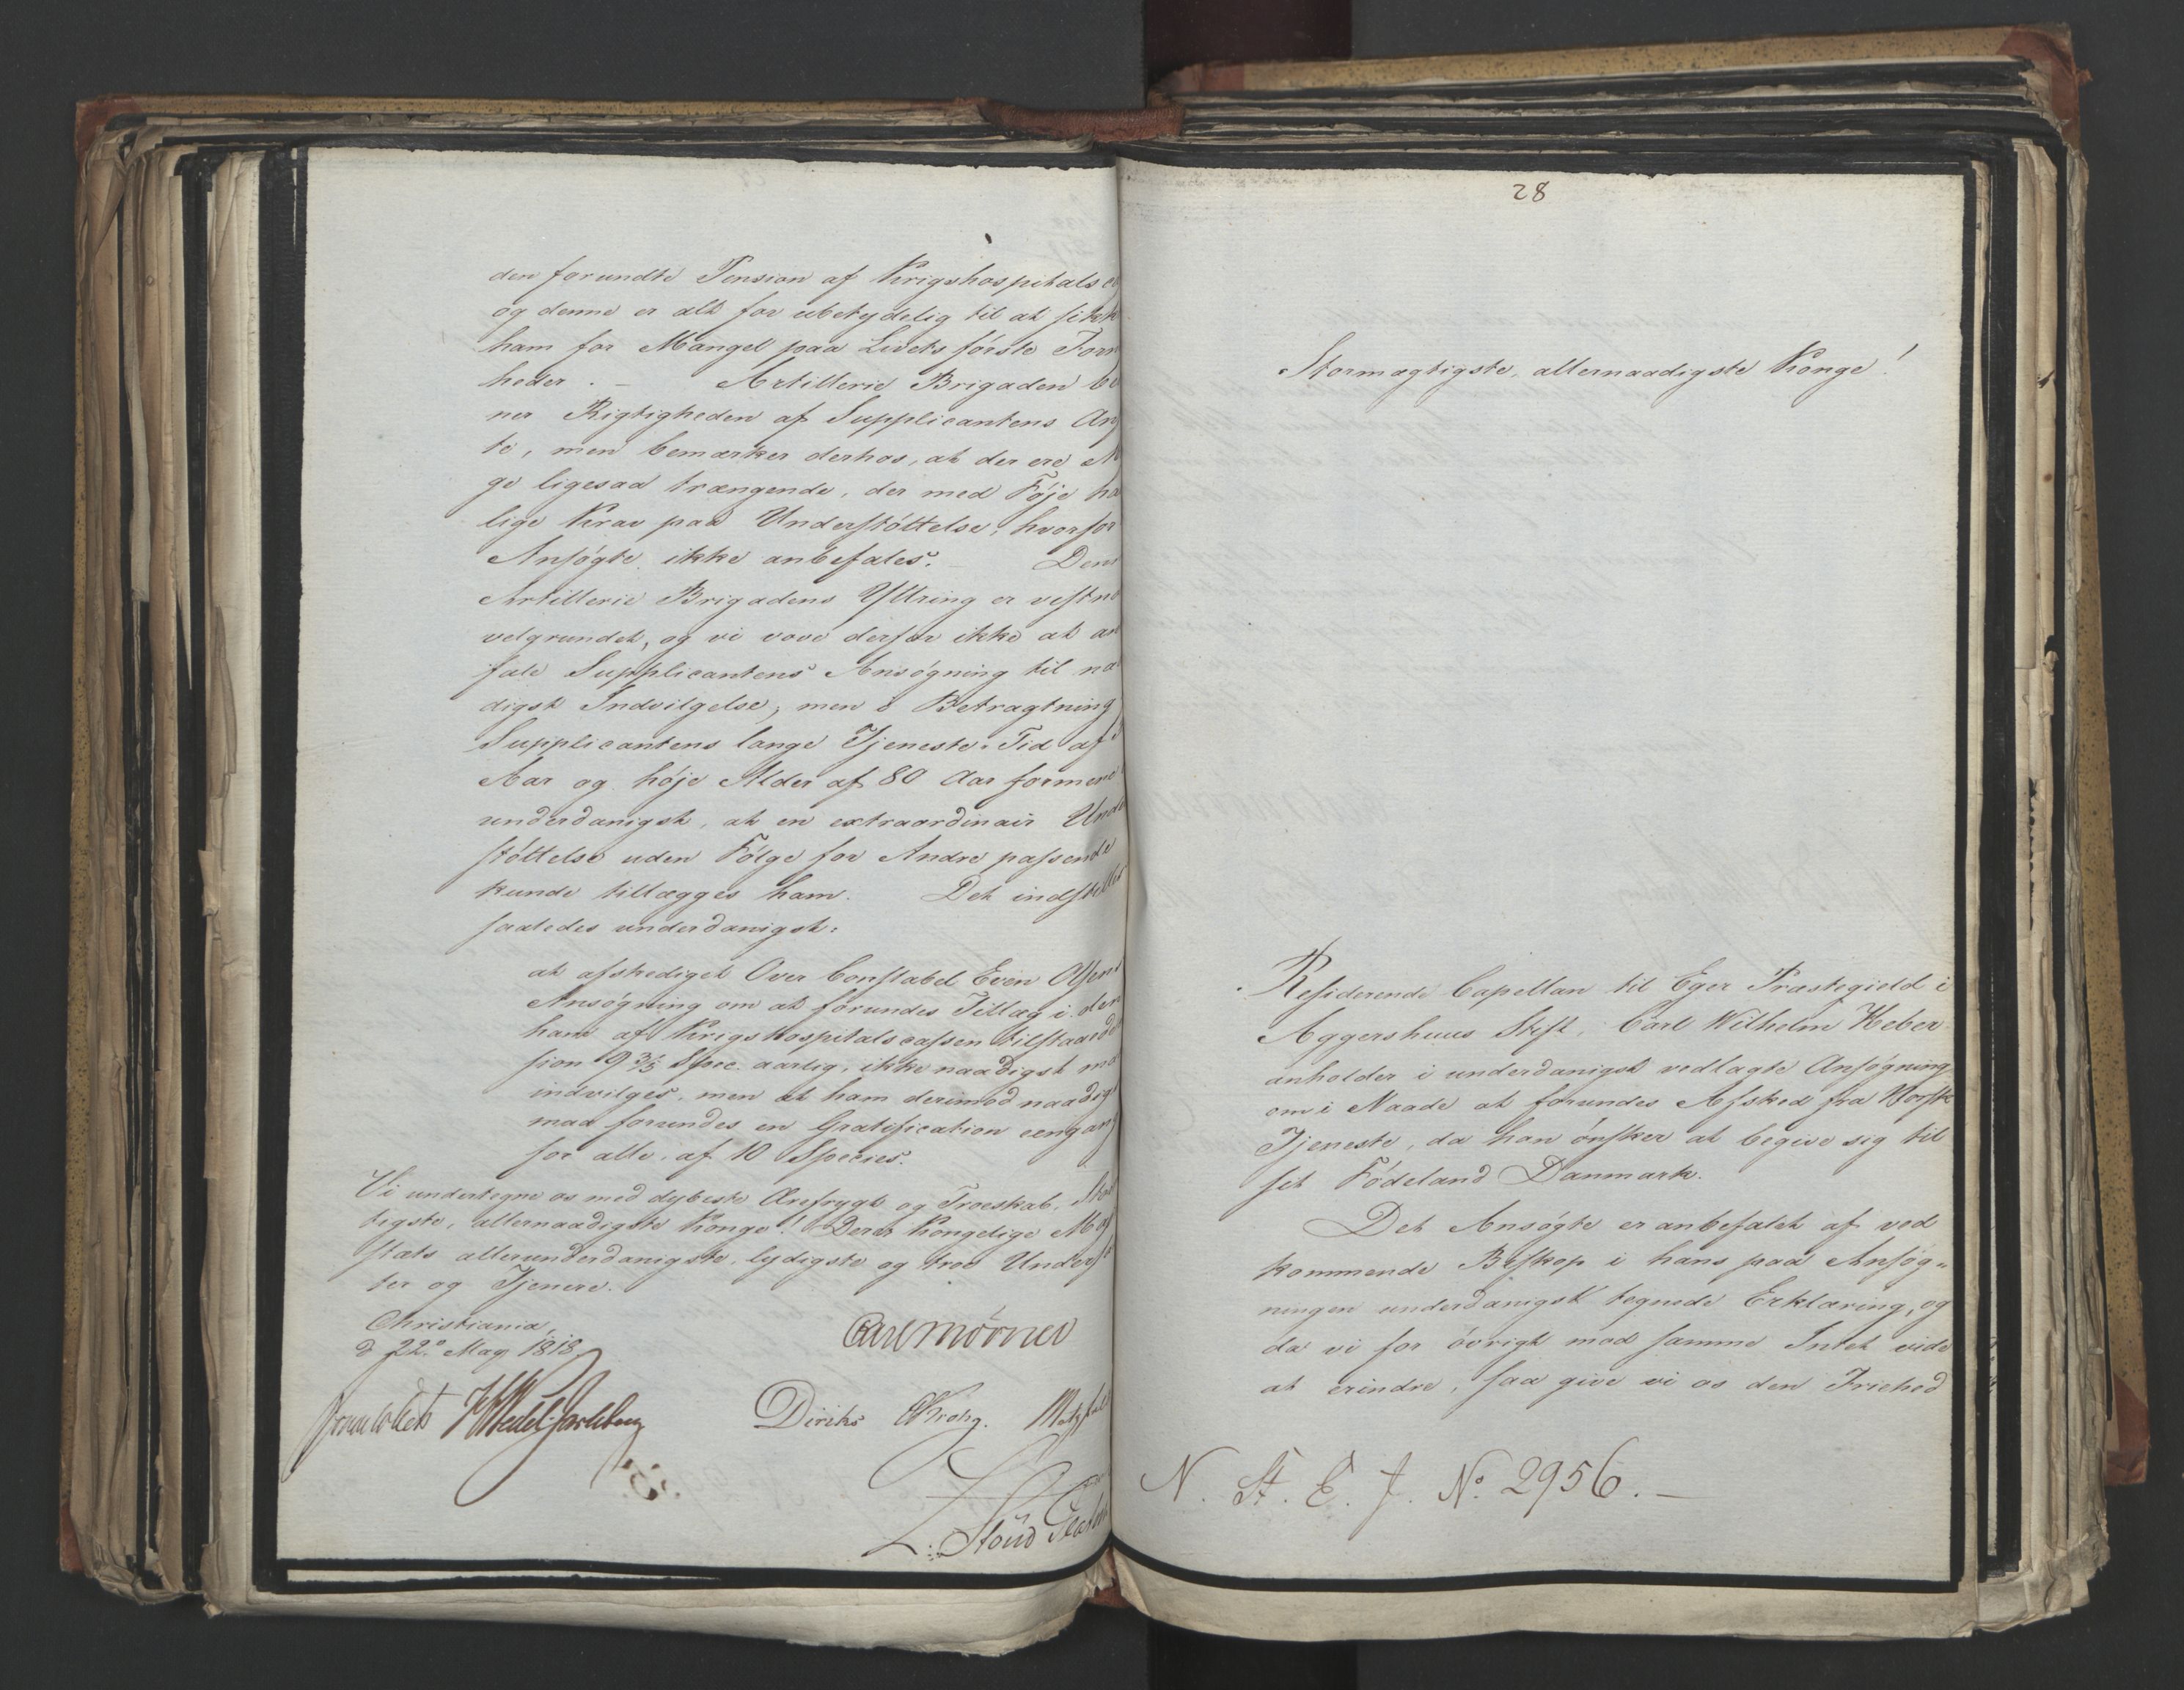 den forundte Pension af Krigshospitals
og denne er alt for ubetydelig til at sikk
ham for Mangel paa Livets første Forn
heder. – Artillerie Brigaden be
ner Rigtigheden af Supplicantens Ang
te, men bemærker derhos, at der ere M
ge ligesaa trængende, der med Føje ha
lige Krav paa Understøttelse, hvorfor
Ansøgte ikke anbefales. – Den
Artillerie Brigadens Yttring er vistno
velgrundet, og vi vove derfor ikke at an
fale Supplicantens Ansøgning til naa
digst Indvilgelse; men i Betragtning
Supplicantens lange Tjeneste-Tid af
Aar og høje Alder af 80 Aar formene
underdanigst, at en extraordinair Under
støttelse uden Følge for Andre passende
kunde tillægges ham. Det indstilles
saaledes underdanigst:
at afskediget Over Constabel Even Olsens
Ansøgning om at forundes Tillæg i den
ham af Krigshospitalscassen tilstaaede
sion 9 3/5 Spec. aarlig, ikke naadigst maa
indvilges, men at ham derimod naadigst
maa forundes en Gratification eengang
for alle, af 10 Species.
Vi undertegne os med dybeste Ærefrygt og Troeskab, Stor
tigste, allernaadigste Konge! Deres Kongelige Maj
stæts allerunderdanigste, lydigste og troe Undersaat
ter og Tjenere.
Christiania,
d 22de May 1818.
Carl Mörner
Sommerhielm HWedel Jarlsberg Diriks CKrohg. Motzfeldt
28
Stormægtigste, allernaadigste Konge!
Residerende Capellan til Eger Præstegield i
Aggershuus Stift, Carl Wilhelm Weber
anholder i underdanigst vedlagte Ansøgning
om i Naade at forundes Afsked fra Norsk
Tjeneste, da han ønsker at begive sig til
sit Fødeland Danmark.
Det Ansøgte er anbefalet af ved
kommende Biskop i hans paa Ansøg-
ningen underdanigst tegnede Erklæring, og
da vi for øvrigt mod samme Intet vide
at erindre, saa give vi os den Friehed
N. St. E. J. No. 2956. –